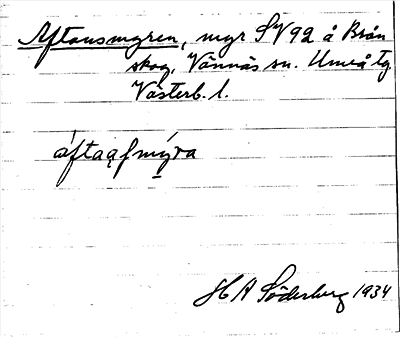 Aftonsmyren, myr SV92 å Brån
skog, Vännäs sn. Umeå tg
Västerb. l.
áftaqfmýra
H A Söderberg 1934